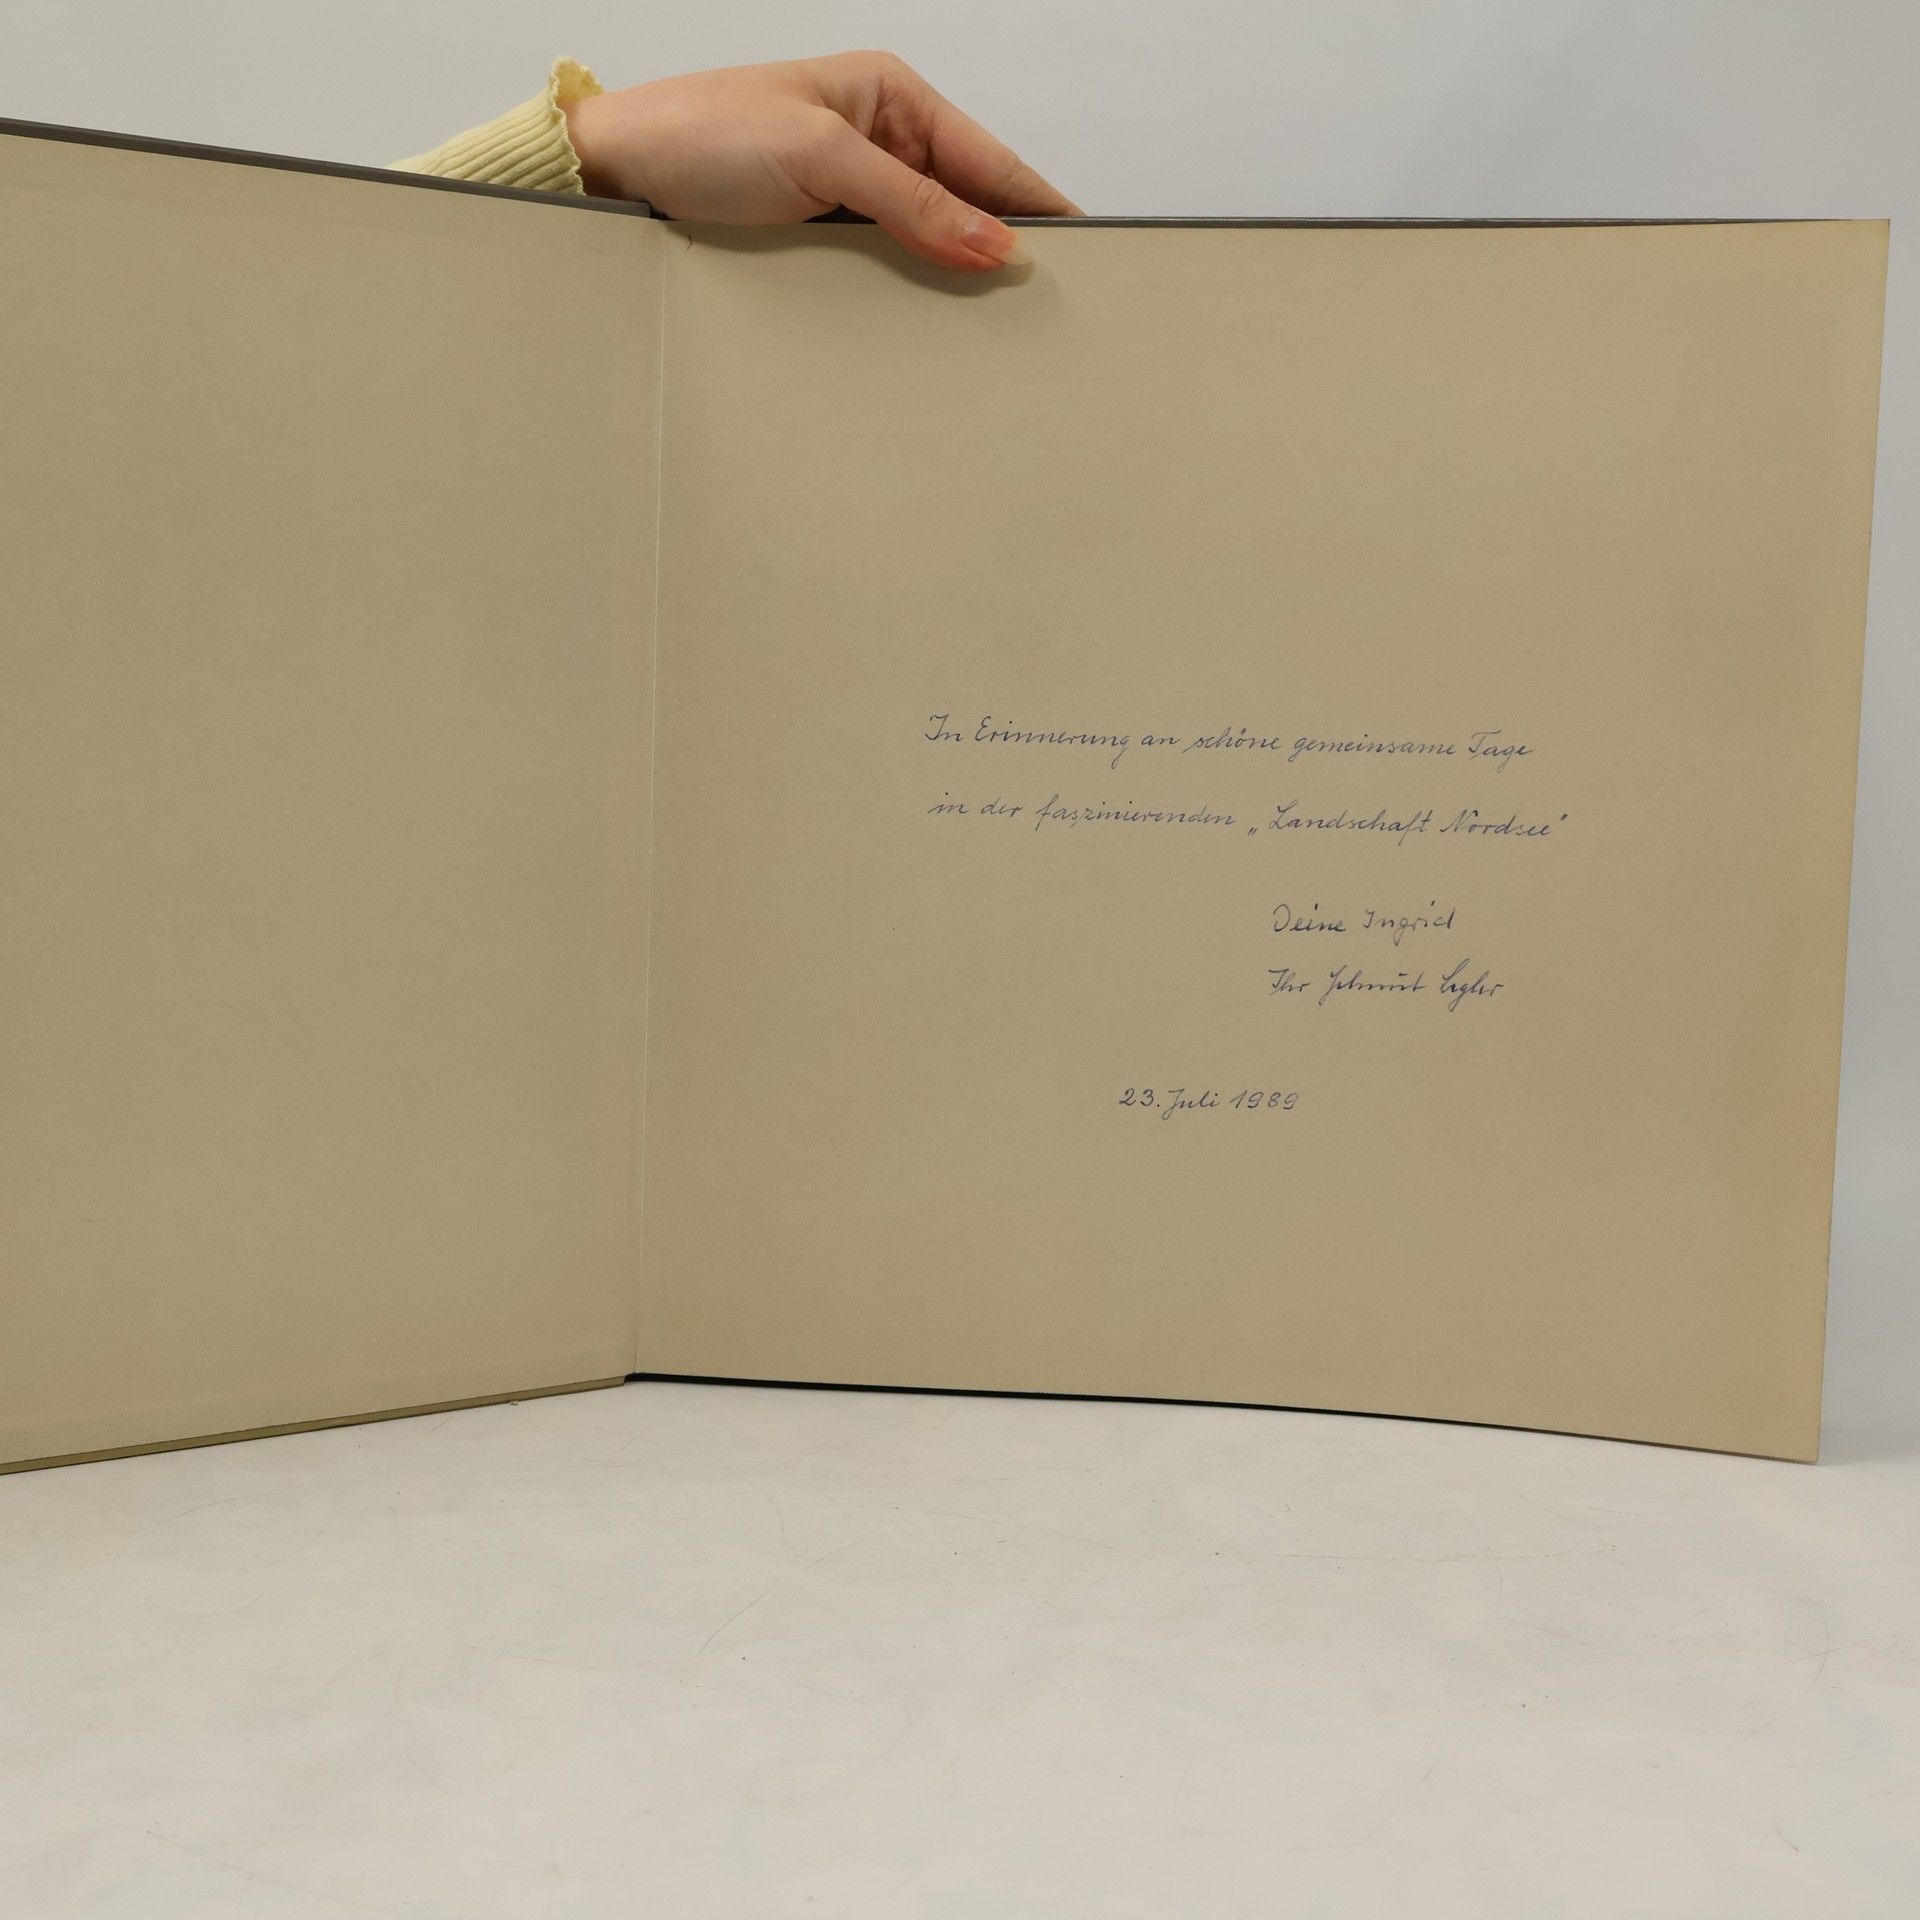 In Erinnerung an schöne gemeinsame Tage
in der faszinierenden „Landschaft Nordsee"
Deine Ingrid
Ihr Helmut
23. Juli 1989